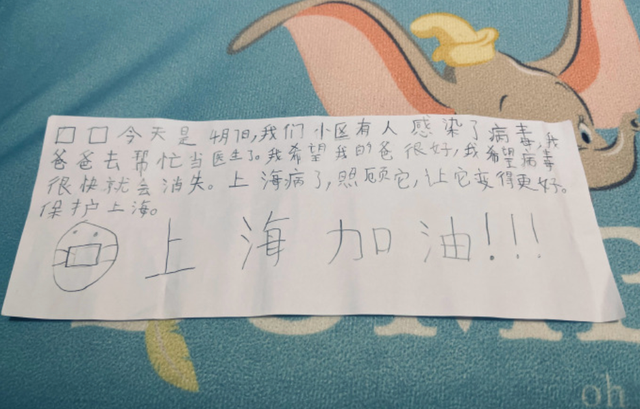 □□今天是4月7日,我们小区有人感染了病毒,我
爸爸去帮忙当医生了。我希望我的爸很好,我希望病毒
很快就会消失。上海病了,照顾它,让它变得更好。
保护上海。
上海加油!!!
oh